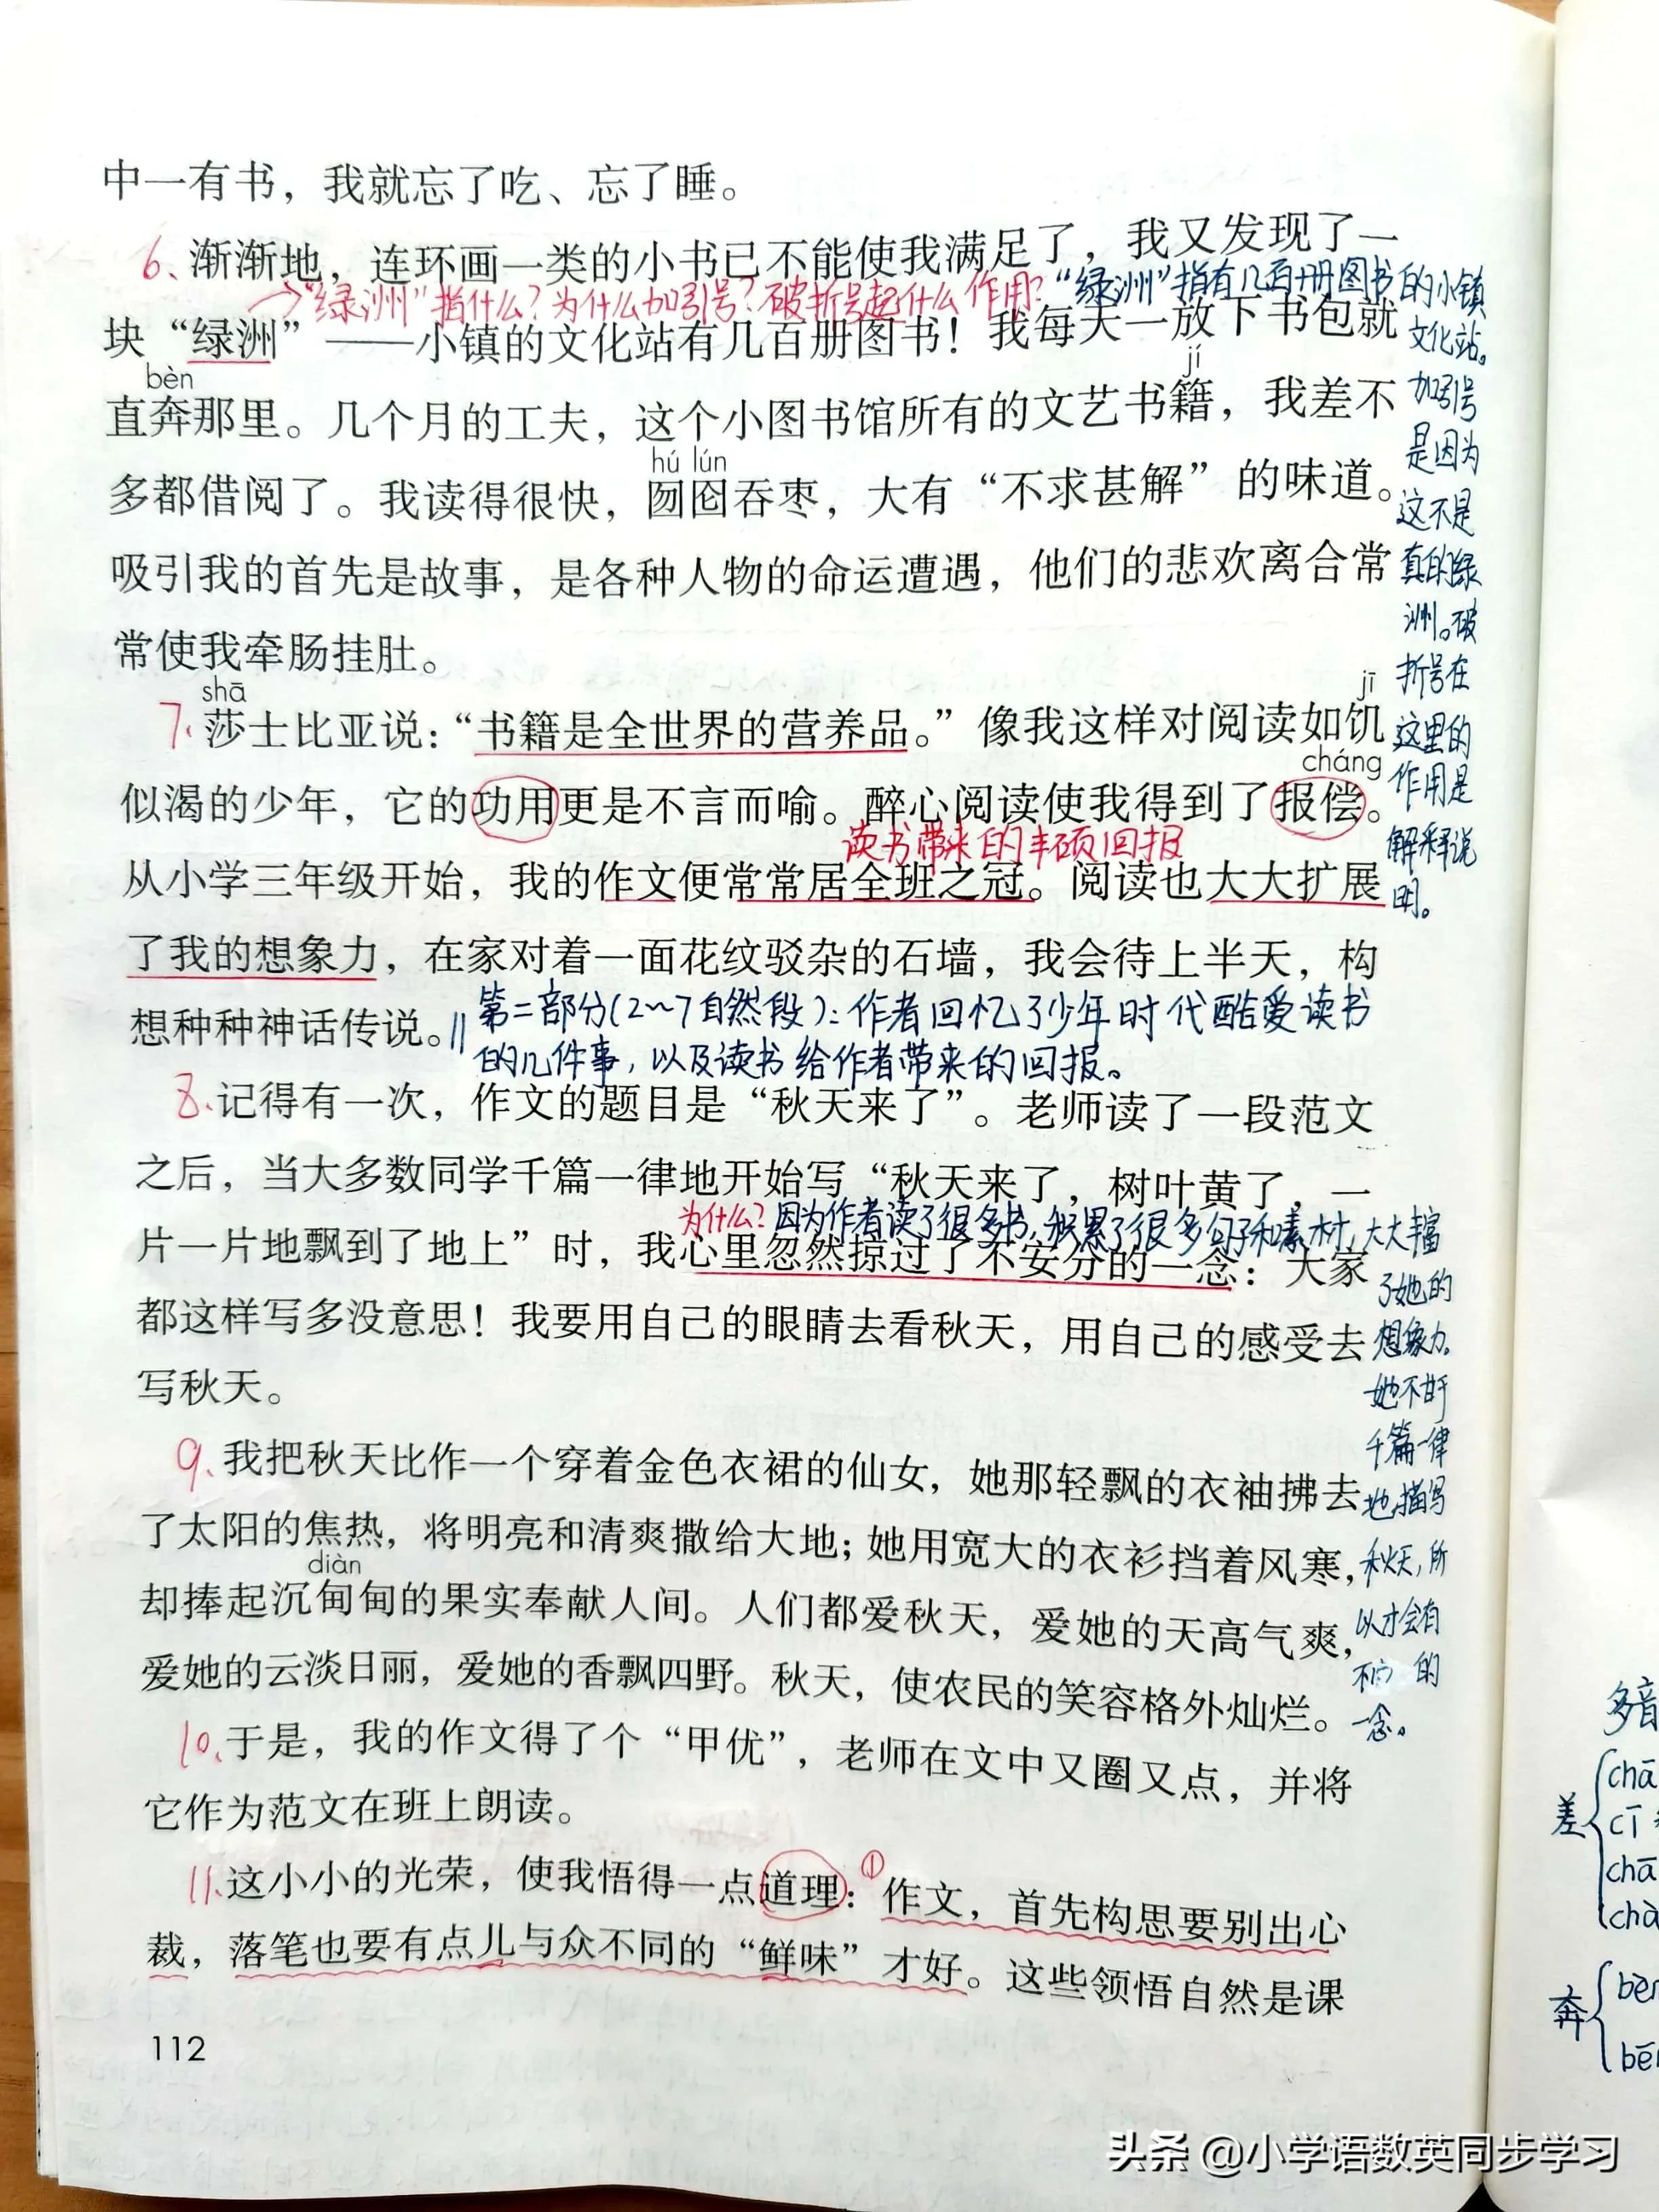 中一有书，我就忘了吃、忘了睡。
6、渐渐地，连环画一类的小书已不能使我满足了，我又发现了一
→“绿洲”指什么？为什么加引号？破折号起什么作用？
“绿洲”指有几百册图书的小镇
文化站。
加引号
是因为
这不是
真的绿
洲。破
折号在
这里的
作用是
解释说
明。
块“绿洲”——小镇的文化站有几百册图书！我每天一放下书包就
bèn
jí
直奔那里。几个月的工夫，这个小图书馆所有的文艺书籍，我差不
hú lún
多都借阅了。我读得很快，囫囵吞枣，大有“不求甚解”的味道。
吸引我的首先是故事，是各种人物的命运遭遇，他们的悲欢离合常
常使我牵肠挂肚。
shā
jī
7、莎士比亚说：“书籍是全世界的营养品。”像我这样对阅读如饥
cháng
似渴的少年，它的功用更是不言而喻。醉心阅读使我得到了报偿。
读书带来的丰硕回报
从小学三年级开始，我的作文便常常居全班之冠。阅读也大大扩展
了我的想象力，在家对着一面花纹驳杂的石墙，我会待上半天，构
想种种神话传说。
‖第二部分（2～7自然段）：作者回忆了少年时代酷爱读书
的几件事，以及读书给作者带来的回报。
8、记得有一次，作文的题目是“秋天来了”。老师读了一段范文
之后，当大多数同学千篇一律地开始写“秋天来了，树叶黄了，一
为什么？因为作者读了很多书，积累了很多句子和素材，大大丰富
了她的
想象力。
她不甘
千篇一律
地描写
秋天，所
以才会有
的
一念。
片一片地飘到了地上”时，我心里忽然掠过了不安分的一念：大家
都这样写多没意思！我要用自己的眼睛去看秋天，用自己的感受去
写秋天。
9、我把秋天比作一个穿着金色衣裙的仙女，她那轻飘的衣袖拂去
了太阳的焦热，将明亮和清爽撒给大地；她用宽大的衣衫挡着风寒，
diàn
却捧起沉甸甸的果实奉献人间。人们都爱秋天，爱她的天高气爽，
爱她的云淡日丽，爱她的香飘四野。秋天，使农民的笑容格外灿烂。
10、于是，我的作文得了个“甲优”，老师在文中又圈又点，并将
它作为范文在班上朗读。
11、这小小的光荣，使我悟得一点道理：①作文，首先构思要别出心
裁，落笔也要有点儿与众不同的“鲜味”才好。这些领悟自然是课
112
多音
差
chā
cī
chā
chà
奔
bēn
头条 @小学语数英同步学习